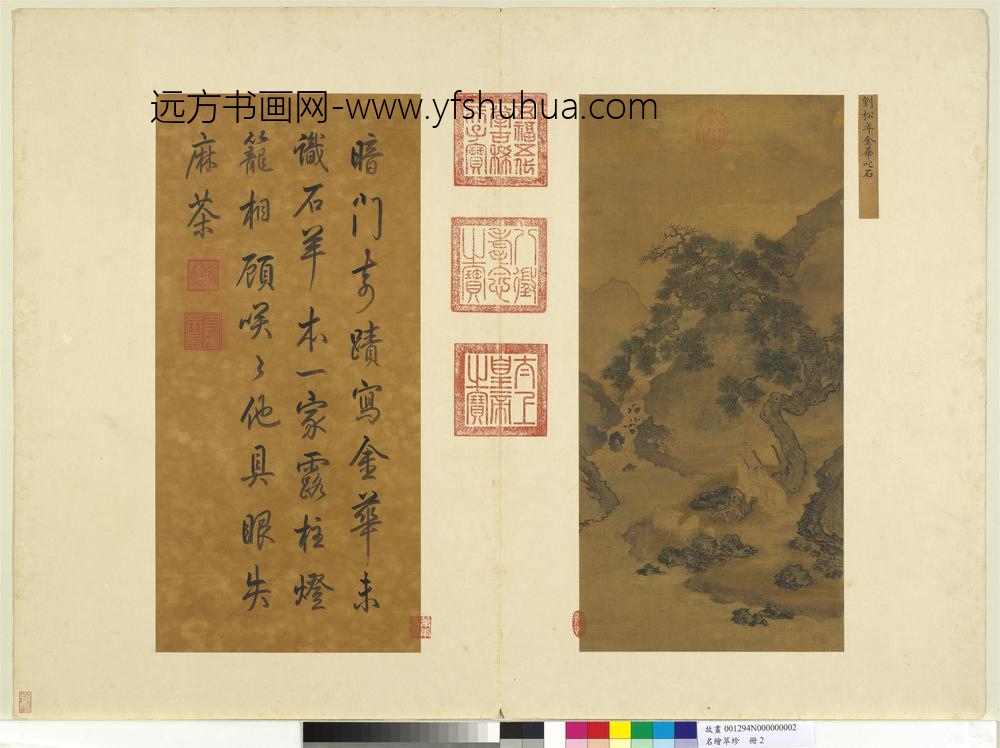 远方书画网-www.yfshuhua.com
劉松年金華叱石
五福五代
堂古稀
天子寶
八徵
耄念
之寶
太上
皇帝
之寶
暗門奇蹟寫金華未
識石羊本一家露柱燈
籠相顧咲々他具眼失
麻茶
故畫 001294N000000002
名繪萃珍 冊 2